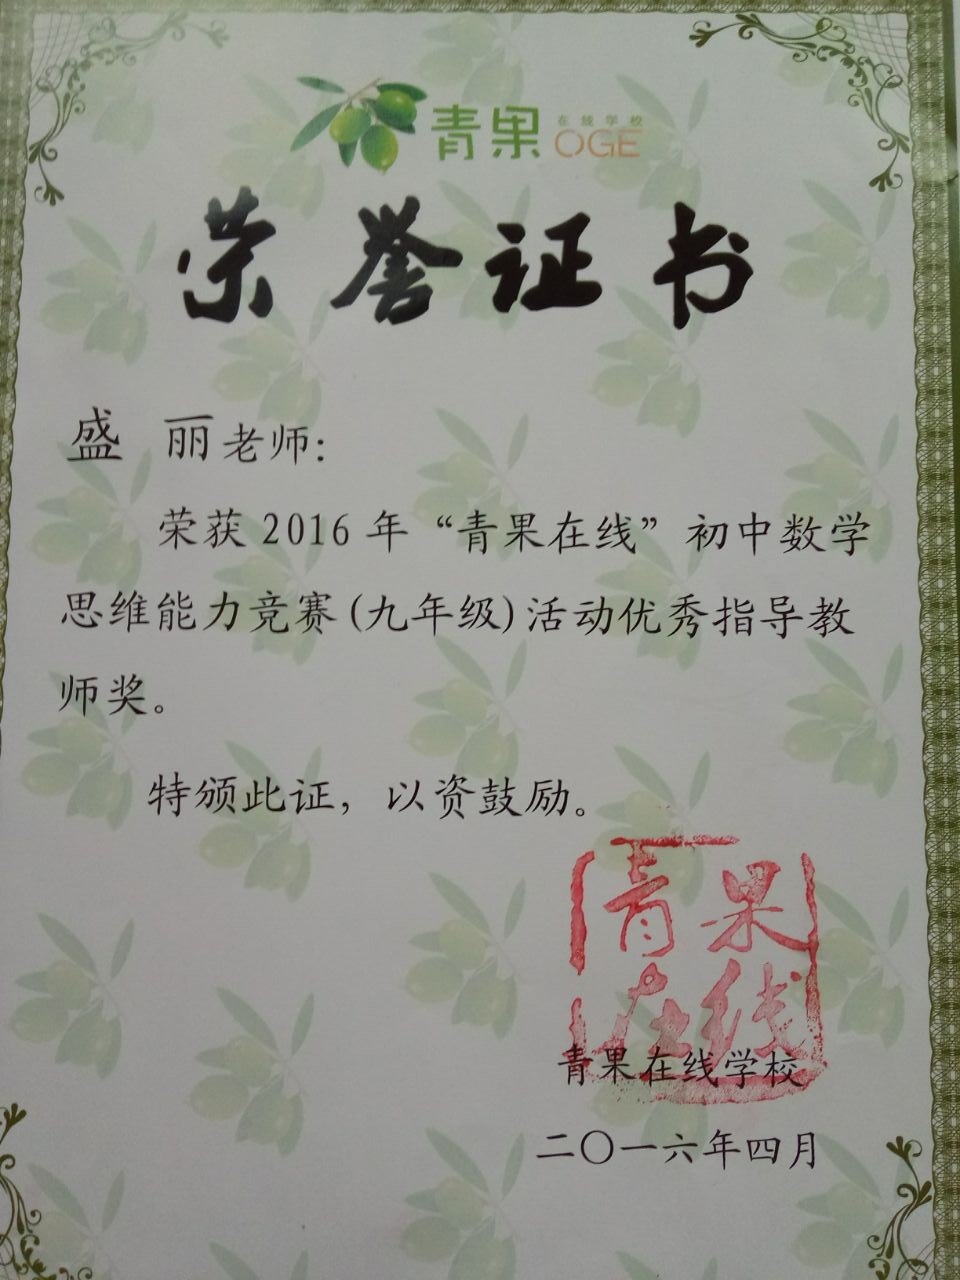 青果 在线学校
OGE
荣誉证书
盛 丽老师:
荣获2016年“青果在线”初中数学
思维能力竞赛(九年级)活动优秀指导教
师奖。
特颁此证，以资鼓励。
青果
在线
青果在线学校
二〇一六年四月